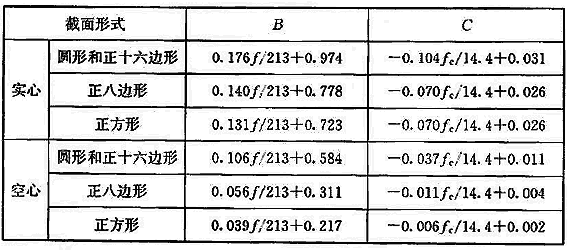 截面形式 B C
实心 圆形和正十六边形 0.176f/213+0.974 −0.104fc/14.4+0.031
正八边形 0.140f/213+0.778 −0.070fc/14.4+0.026
正方形 0.131f/213+0.723 −0.070fc/14.4+0.026
空心 圆形和正十六边形 0.106f/213+0.584 −0.037fc/14.4+0.011
正八边形 0.056f/213+0.311 −0.011fc/14.4+0.004
正方形 0.039f/213+0.217 −0.006fc/14.4+0.002